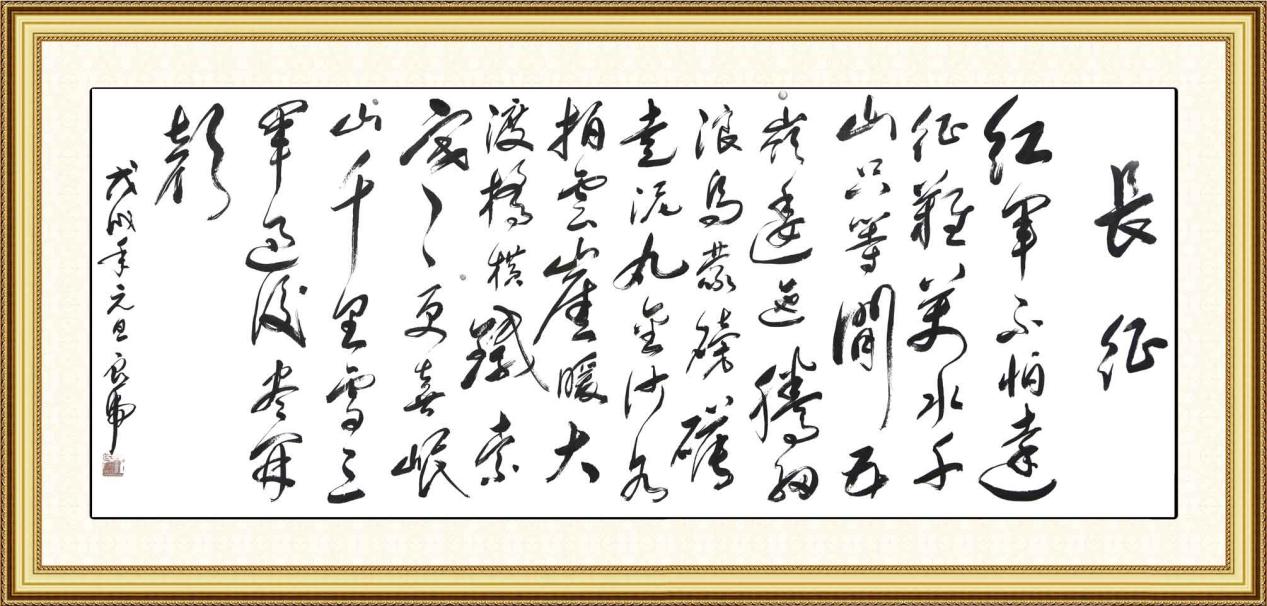 長征
紅軍不怕遠
征難萬水千
山只等閒五
嶺逶迤騰細
浪烏蒙磅礴
走泥丸金沙水
拍雲崖暖大
渡橋橫鐵索
寒更喜岷
山千里雪三
軍過後盡開
顏
戊戌年元旦良